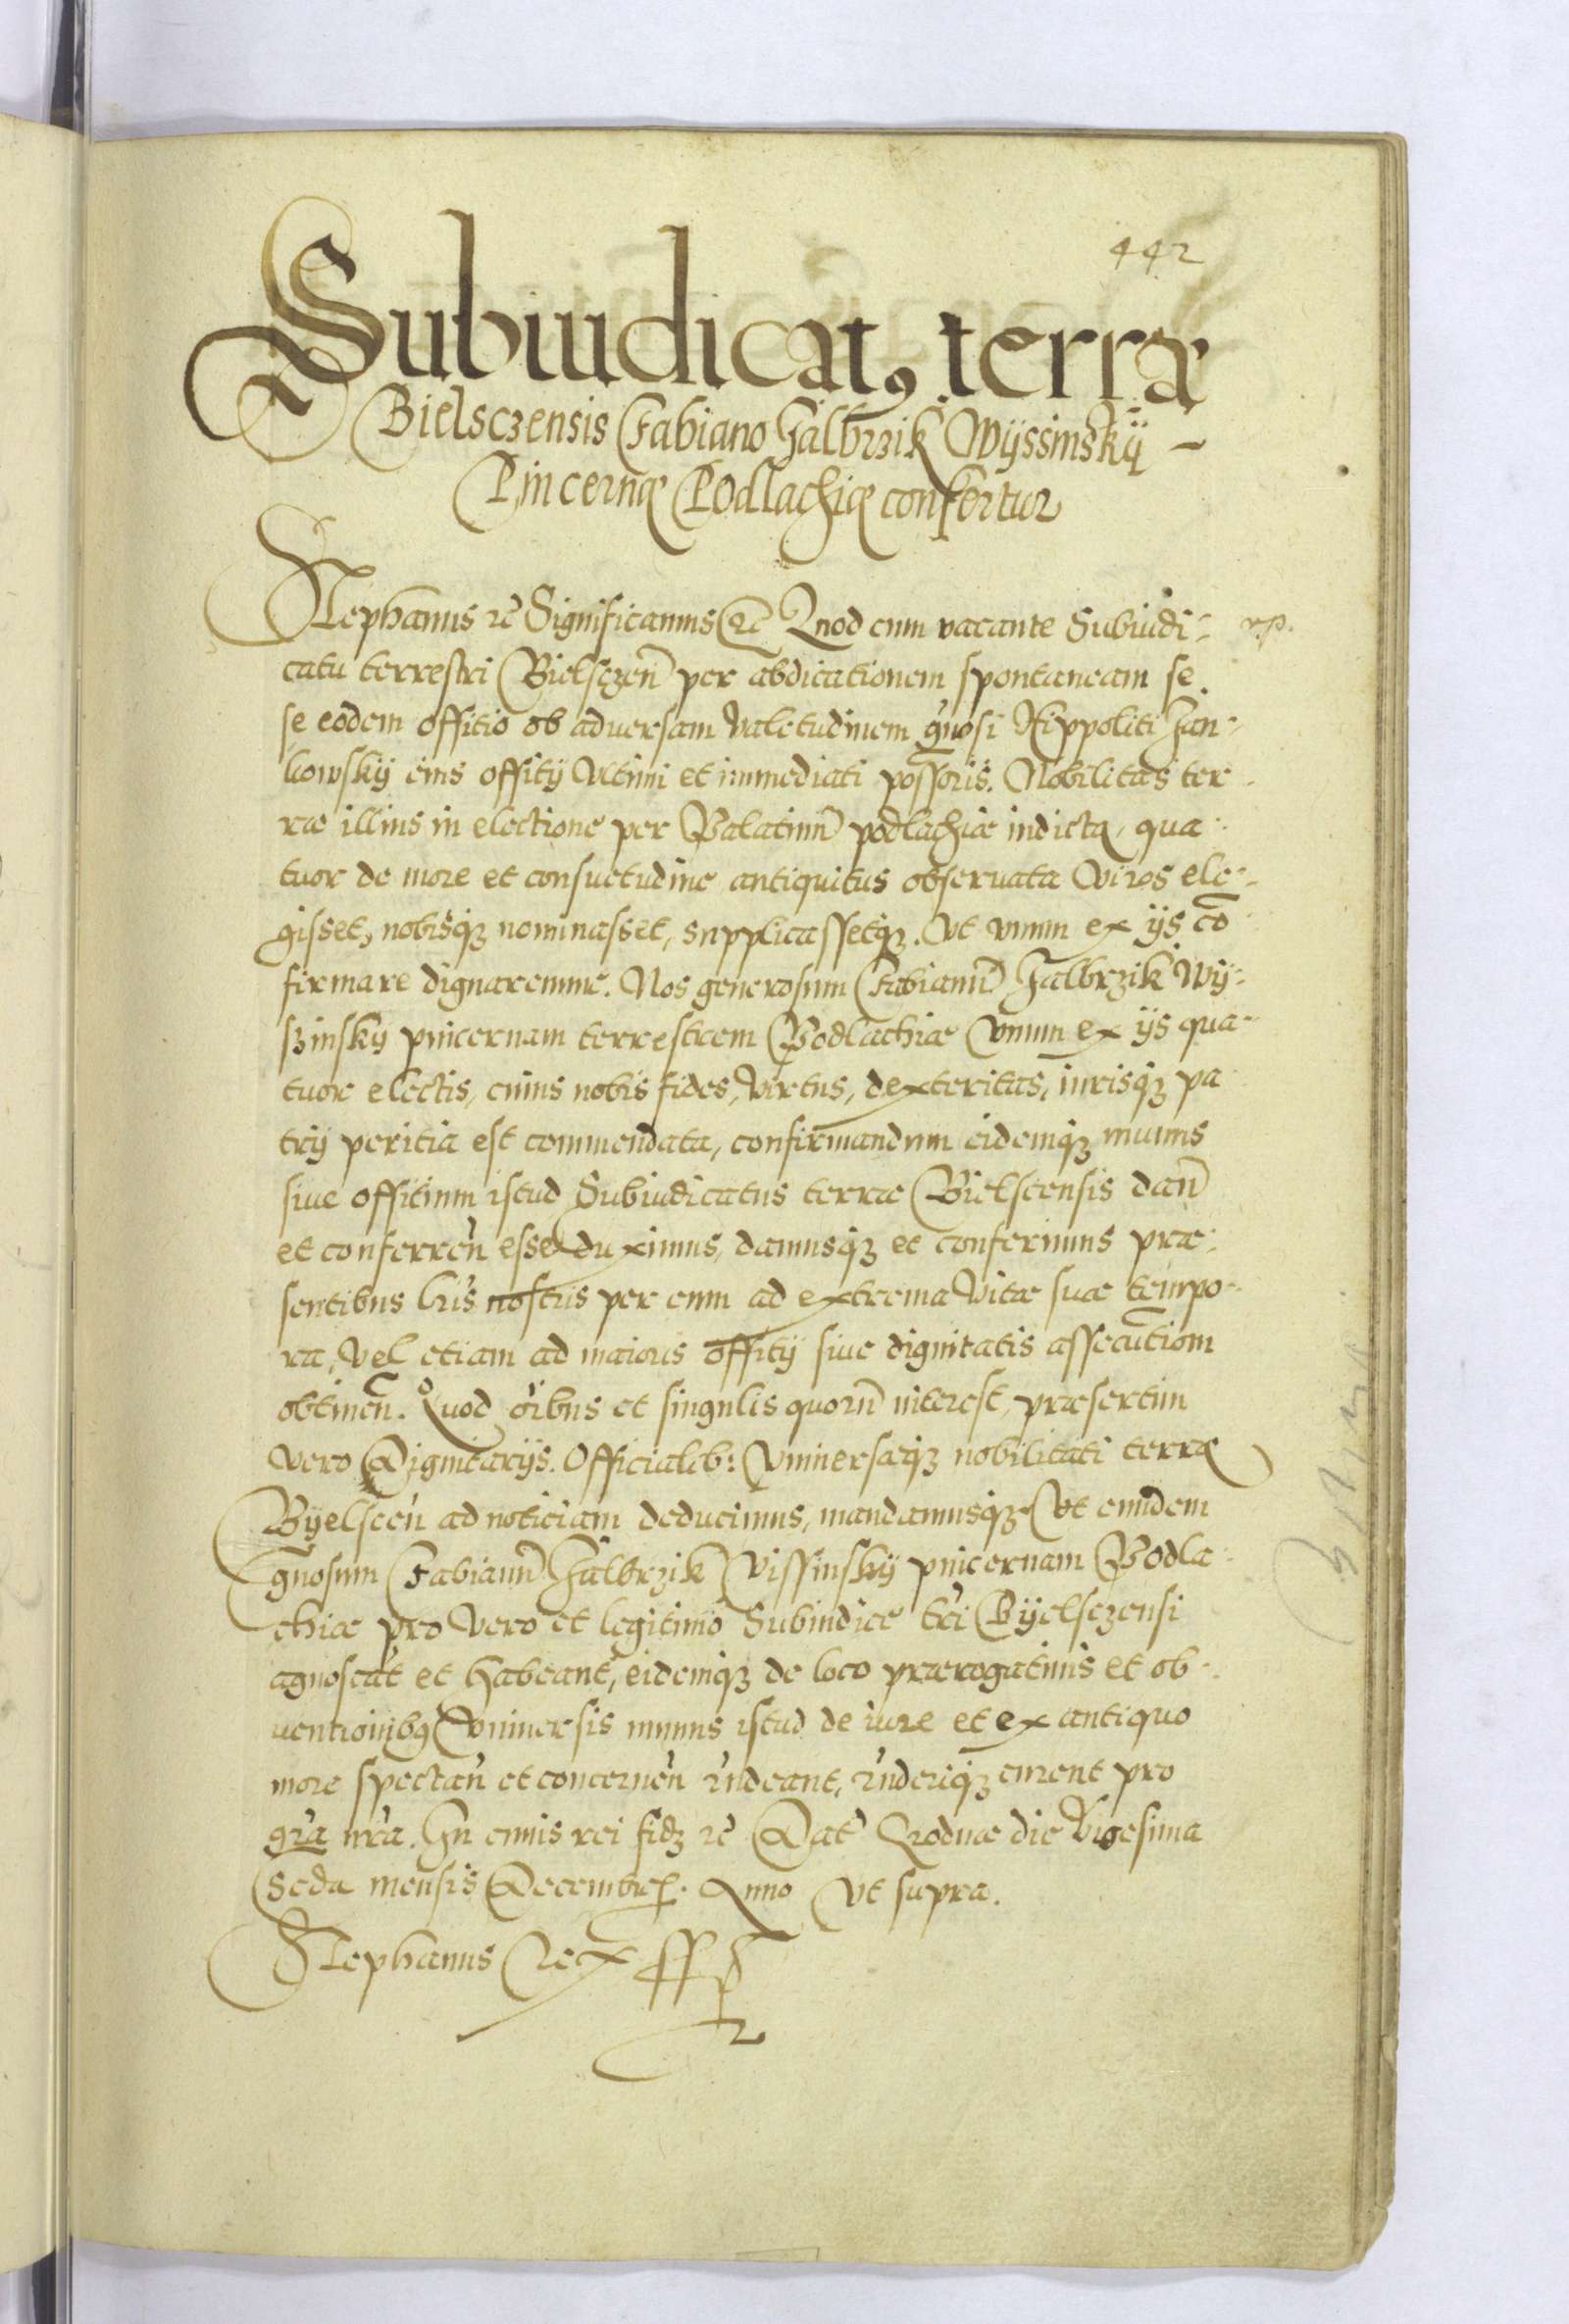 442
Subiudicat9 terræ
Bielsczensis Fabiano Jałbrzik Wÿssinskÿ
Pincernæ Podlachiæ confertur
Stephanus rc Significamus rc Quod cum vacante Subiudi-
catu terrestri Bielsczen̄ per abdicationem spontaneam se
se eodem offitio ob aduersam valetudinem gn̄osi Hippoliti Jan-
kowskÿ eius offitÿ vltimi et immediati poss̄oris. Nobilitas ter
ræ illius in electione per Palatinū podlachiæ indicta, qua
tuor de more et consuetudine antiquitus obseruata viros ele-
gisset, nobisqȝ nominasset, supplicassetqȝ. Vt vnum ex ÿs cō
firmare dignaremur. Nos generosum Fabianū Jałbrzik Wÿ-
szinskÿ pincernam terrestrem Podlachiæ vnum ex ÿs qua-
tuor electis, cuius nobis fides, virtus, dexteritas, iurisqȝ pa
trÿ peritia est commendata, confirmandum eidemqȝ munus
siue offitium istud Subiudicatus terræ Bielscensis dan̄
et conferren̄ esse duximus, damusqȝ et conferimus præ-
sentibus lr̄is nostris per eum ad extrema vitæ suæ tempo-
ra, vel etiam ad maioris offitÿ siue dignitatis assecutiom̄
obtinen̄. Quod oi̅bus et singulis quorū interest, præsertim
vero Dignitarÿs. Officialib: vniuersæqȝ nobilitati terræ
Bÿelscen̄ ad noticiam deducimus, mandamusqȝ Vt eundem
gn̄osum Fabianū Jałbrzik Vissinskÿ pincernam Podla-
chiæ pro vero et legitimo Subiudice tr̄i Bÿelsczensi
agnoscāt et habeant, eidemqȝ de loco prærogatiuis et ob-
uentionib9 vniuersis munus istud de iure et ex antiquo
more spectan̄ et concernen̄ rn̄deant, rn̄deriqȝ curent pro
gr̄a nr̄a. In cuius rei fidȝ rc Dat Grodnæ die vigesima
Seda mensis Decembr. Anno vt supra.
Stephanus Rex sspt